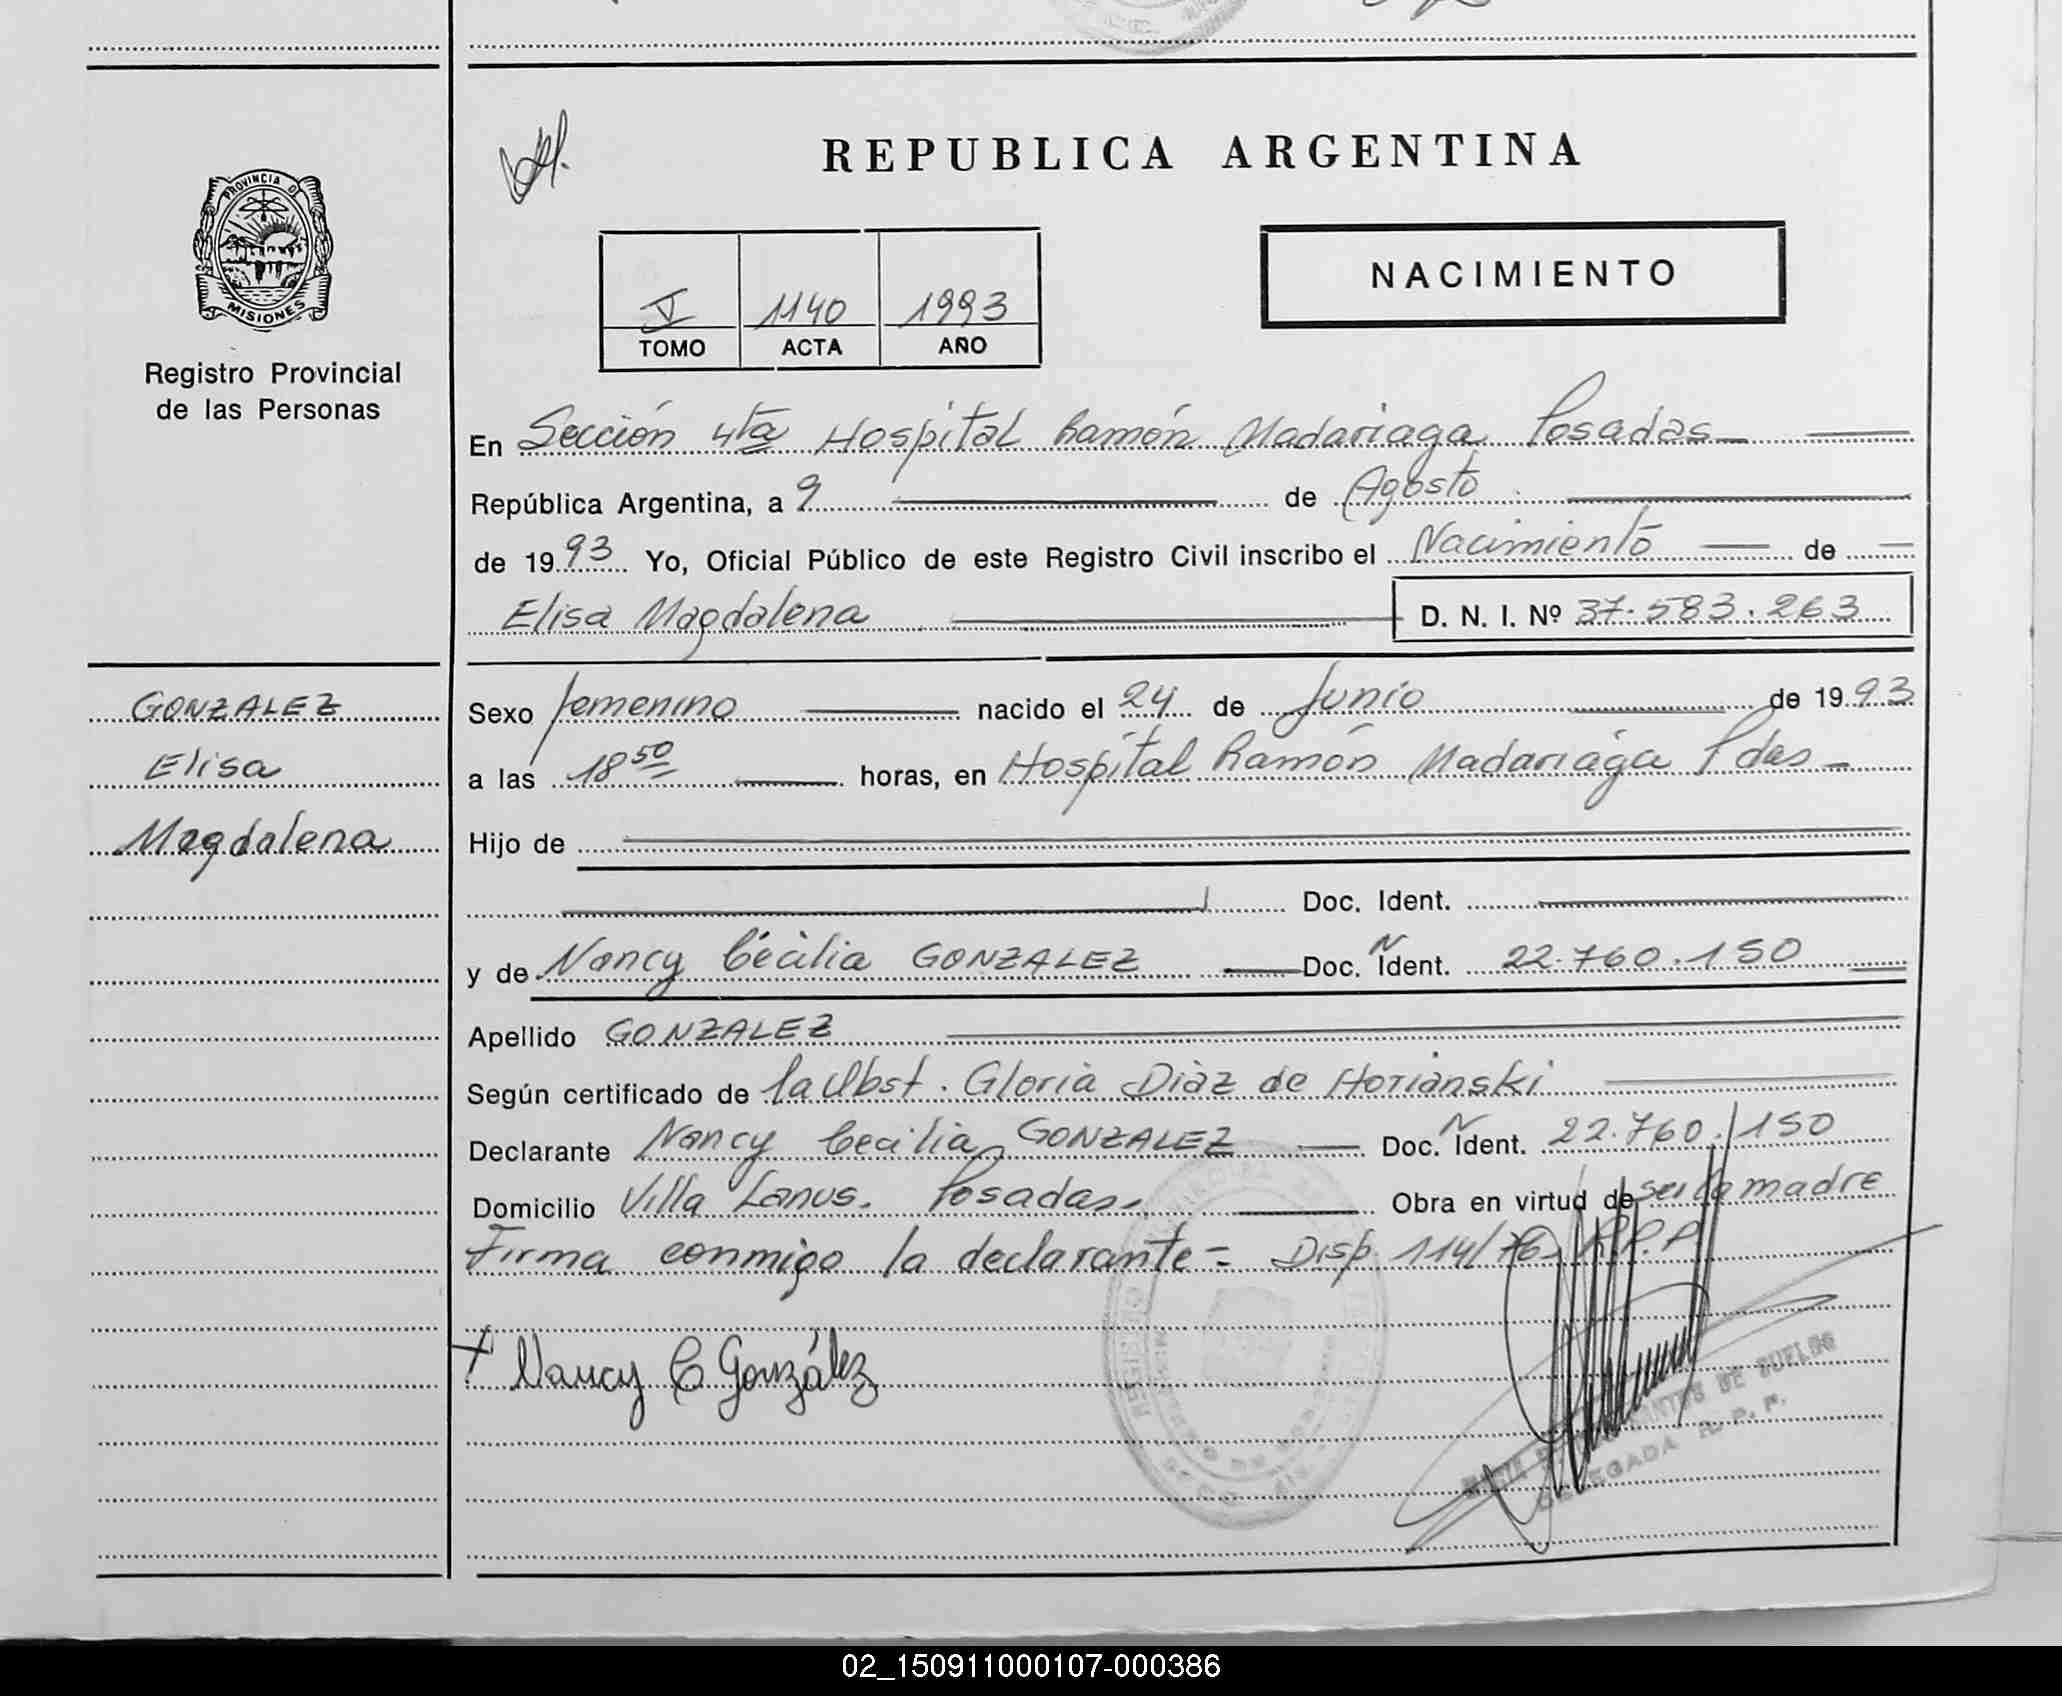 REPUBLICA ARGENTINA
PROVINCIA DE
MISIONES
Registro Provincial
de las Personas
V 1140 1993
TOMO ACTA AÑO
NACIMIENTO
En Sección 4ta Hospital Ramón Madariaga Posadas
República Argentina, a 9 de Agosto
de 1993 Yo, Oficial Público de este Registro Civil inscribo el Nacimiento de
Elisa Magdalena D. N. I. Nº 37.583.263
GONZALEZ
Elisa
Magdalena
Sexo femenino nacido el 24 de Junio de 1993
a las 18 50 horas, en Hospital Ramón Madariaga Pdas
Hijo de
Doc. Ident.
y de Nancy Cecilia GONZALEZ Doc. N Ident. 22.760.150
Apellido GONZALEZ
Según certificado de la Obst. Gloria Diaz de Horianski
Declarante Nancy Cecilia GONZALEZ Doc. N Ident. 22.760.150
Domicilio Villa Lanus. Posadas. Obra en virtud de ser la madre
Firma conmigo la declarante = Disp. 114/76 R.P.P
Nancy C González
DE SUELDO
DELEGADA R. P. P.
02_150911000107-000386